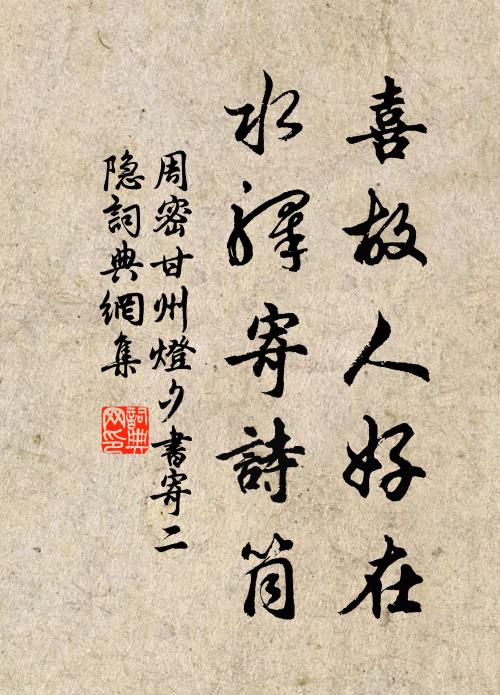 喜故人好在
水驛寄詩筒
周密甘州燈夕書寄二
隱詞典網集
詞典網印